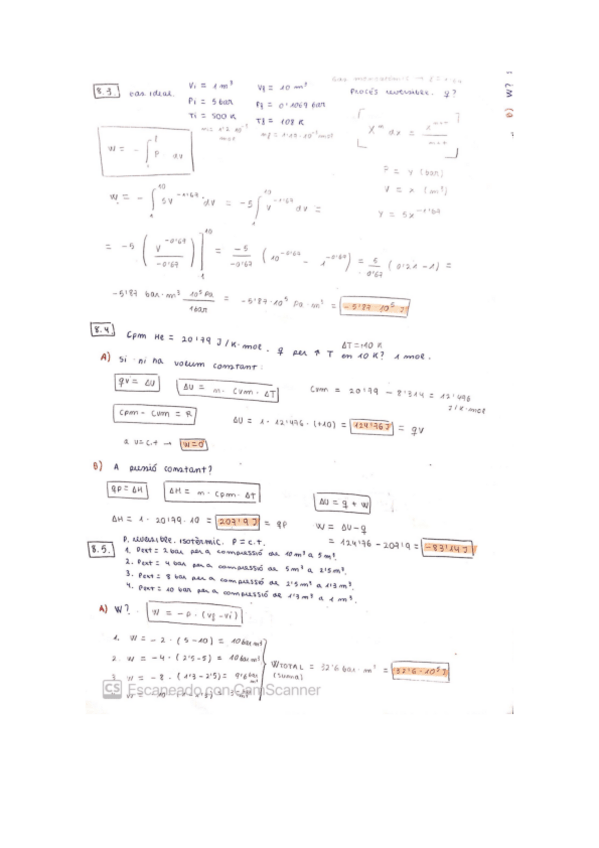 8.3. Gas ideal. Vi = 1 m³ Vf = 10 m³
Procés reversible. q?
Pi = 5 bar Pf = 0'1069 bar
Ti = 500 K Tf = 108 K
W = - ∫ P · dv
W = - ∫₁¹⁰ 5v^-1'67 dv = -5 ∫₁¹⁰ v^-1'67 dv =
P = y (bar)
V = x (m³)
y = 5x^-1'67
= -5 ( v^-0'67 / -0'67 ) |₁¹⁰ = -5 / -0'67 (10^-0'67 - 1^-0'67) = 5 / 0'67 (0'21 - 1) =
-5'87 bar·m³ 10⁵ Pa / 1 bar = -5'87·10⁵ Pa·m³ = -5'87·10⁵ J
8.4. Cpm He = 20'79 J/K·mol. q per ↑ T en 10 K? 1 mol.
ΔT = +10 K
A) Si hi ha volum constant:
qv = ΔU ΔU = n · Cvm · ΔT Cvm = 20'79 - 8'314 = 12'476
J/K·mol
Cpm - Cvm = R ΔU = 1 · 12'476 · (+10) = 124'76 J = qv
a v=c.t → W=0
B) A pressió constant?
qp = ΔH ΔH = n · Cpm · ΔT ΔU = q + W
ΔH = 1 · 20'79 · 10 = 207'9 J = qp W = ΔU - q
= 124'76 - 207'9 = -83'14 J
8.5. P. reversible. isotèrmic. P = c.t.
1. Pext = 2 bar per a compressió de 10 m³ a 5 m³.
2. Pext = 4 bar per a compressió de 5 m³ a 2'5 m³.
3. Pext = 8 bar per a compressió de 2'5 m³ a 1'3 m³.
4. Pext = 10 bar per a compressió de 1'3 m³ a 1 m³.
A) W? W = -p · (vf - vi)
1. W = -2 · (5 - 10) = 10 bar m³
2. W = -4 · (2'5 - 5) = 10 bar m³
WTOTAL = 32'6 bar · m³ = 32'6 · 10⁵ J
(suma)
3. W = -8 · (1'3 - 2'5) = 9'6 bar m³
CS Escaneado con CamScanner
B) W?